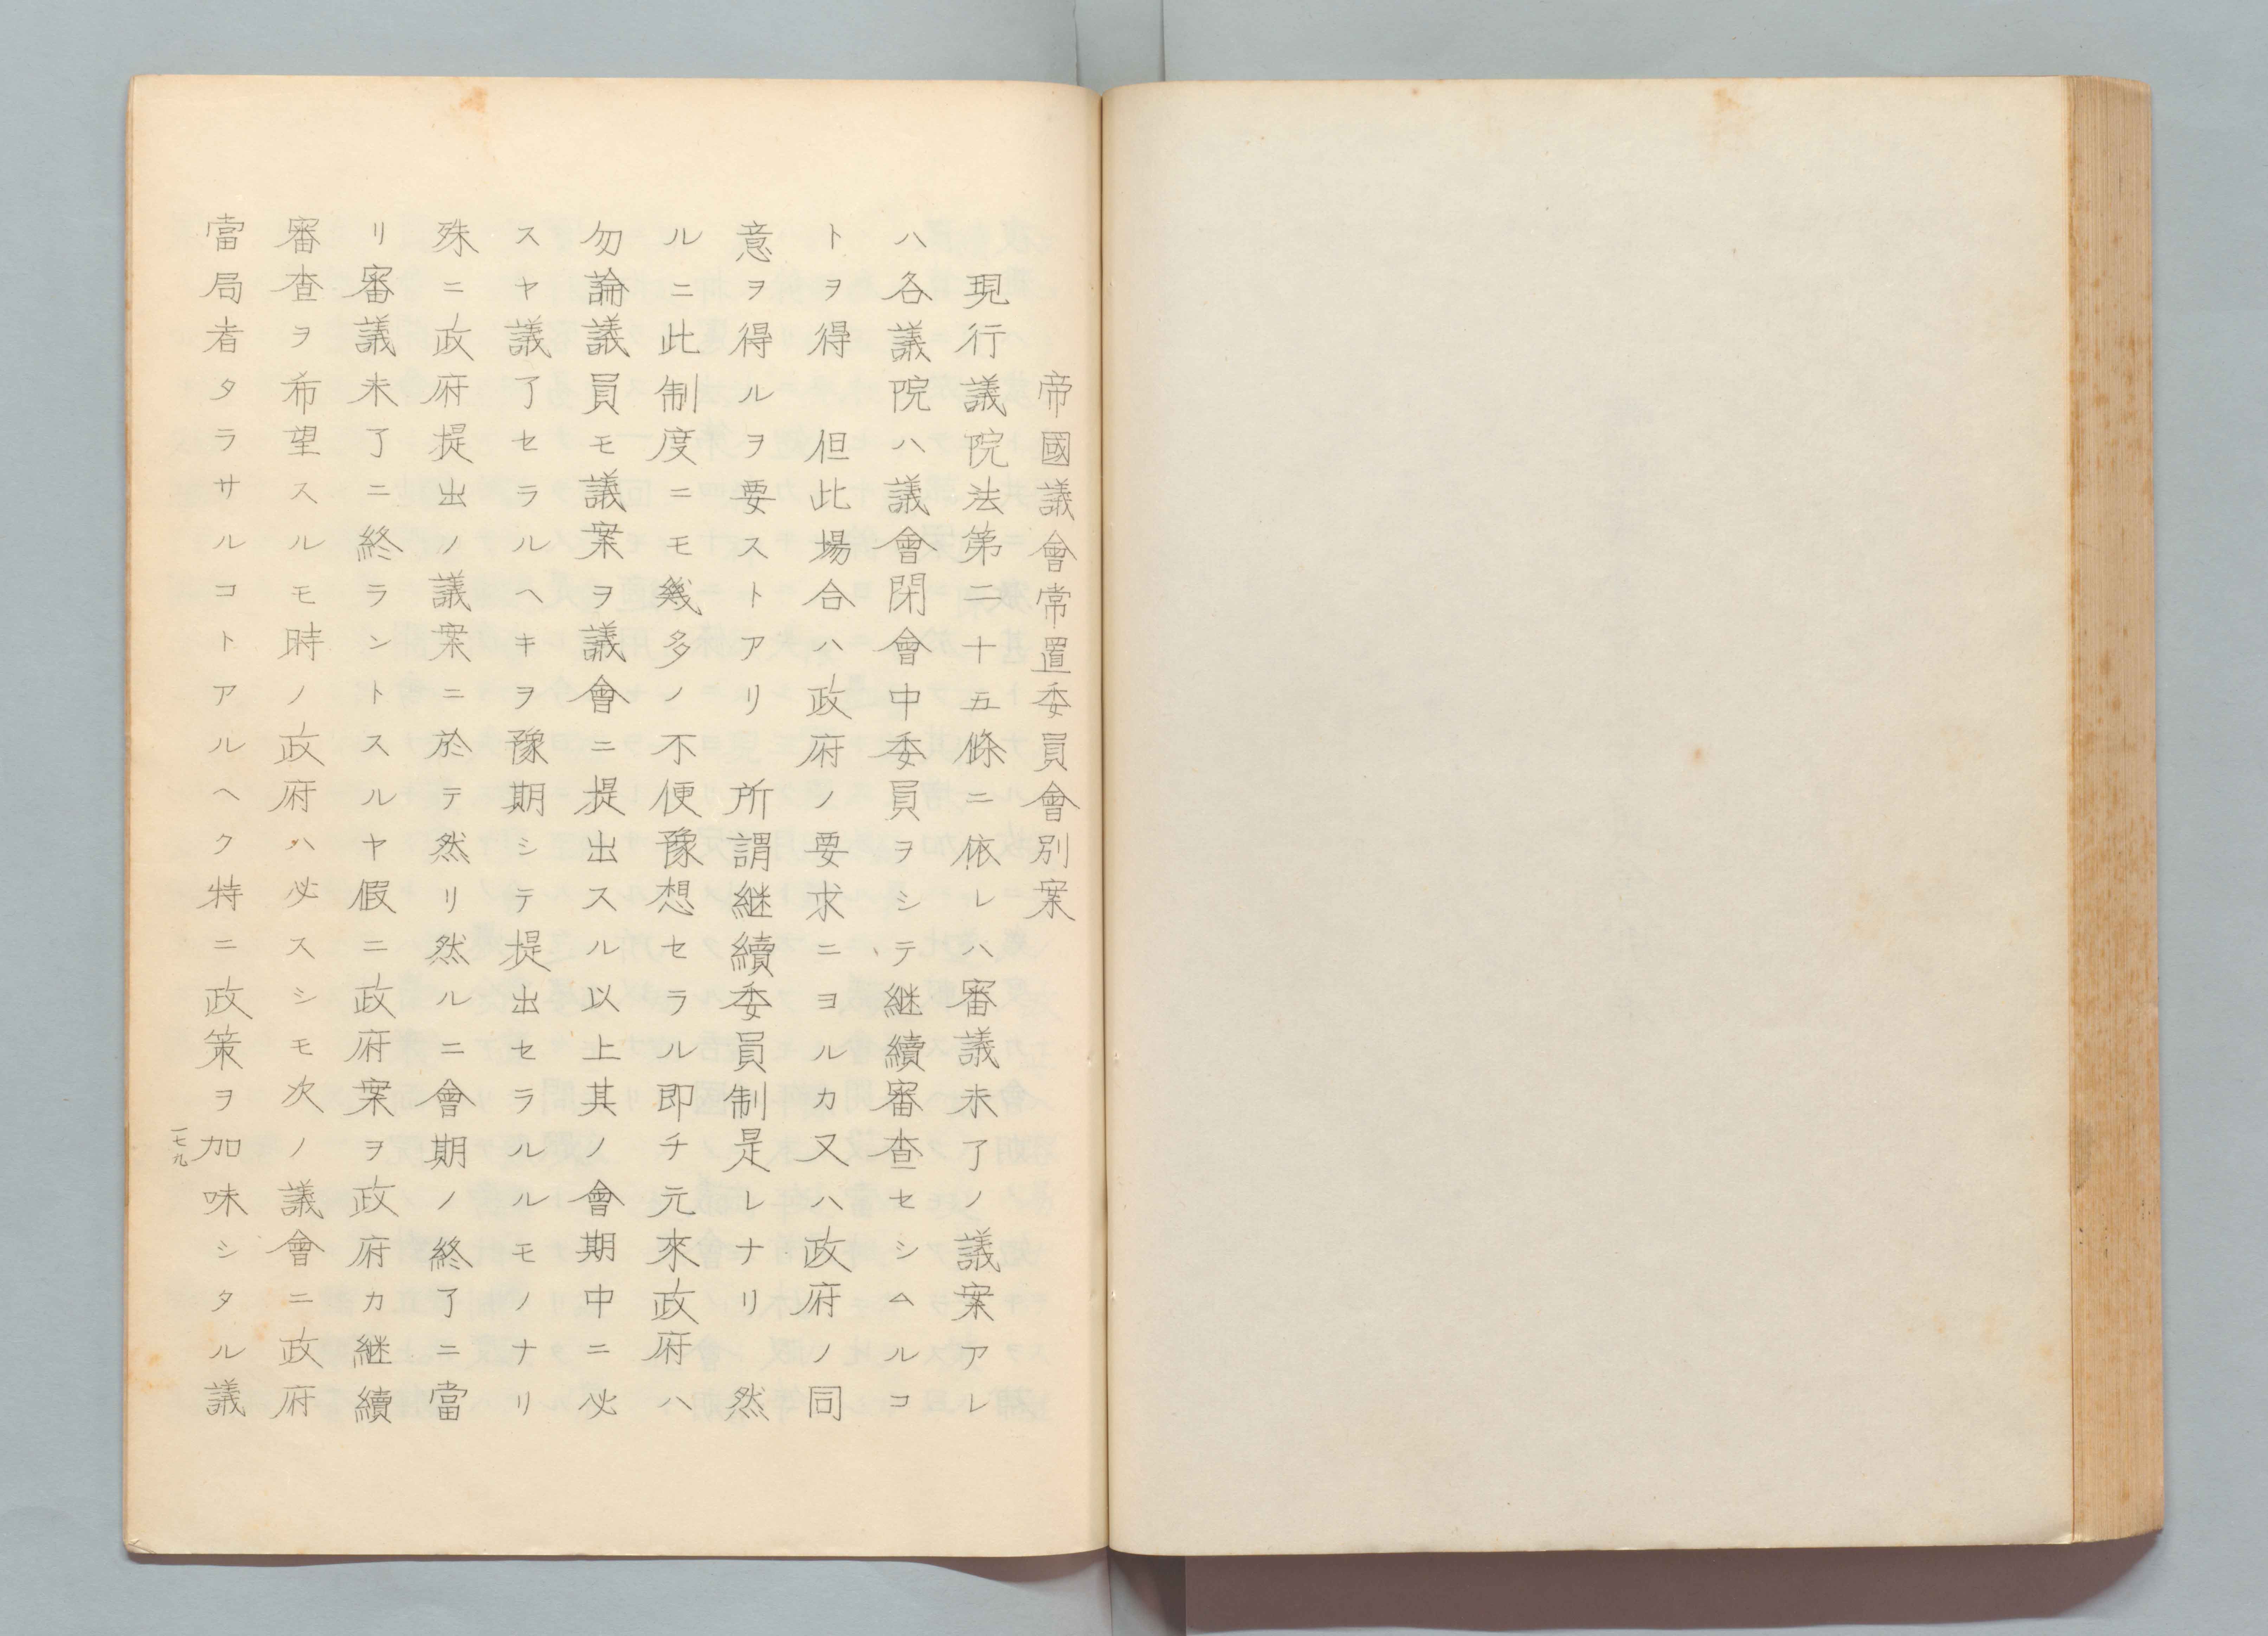 帝國議會常置委員會別案
現行議院法第二十五條ニ依レハ審議未了ノ議案アレ
ハ各議院ハ議會閉會中委員ヲシテ継續審査セシムルコ
トヲ得　但此場合ハ政府ノ要求ニヨルカ又ハ政府ノ同
意ヲ得ルヲ要ストアリ　所謂継續委員制是レナリ　然
ルニ此制度ニモ幾多ノ不便豫想セラル即チ元來政府ハ
勿論議員モ議案ヲ議會ニ提出スル以上其ノ會期中ニ必
スヤ議了セラルヘキヲ豫期シテ提出セラルルモノナリ
殊ニ政府提出ノ議案ニ於テ然リ然ルニ會期ノ終了ニ當
リ審議未了ニ終ラントスルヤ假ニ政府案ヲ政府カ継續
審査ヲ希望スルモ時ノ政府ハ必スシモ次ノ議會ニ政府
當局者タラサルコトアルヘク特ニ政策ヲ加味シタル議
一七九